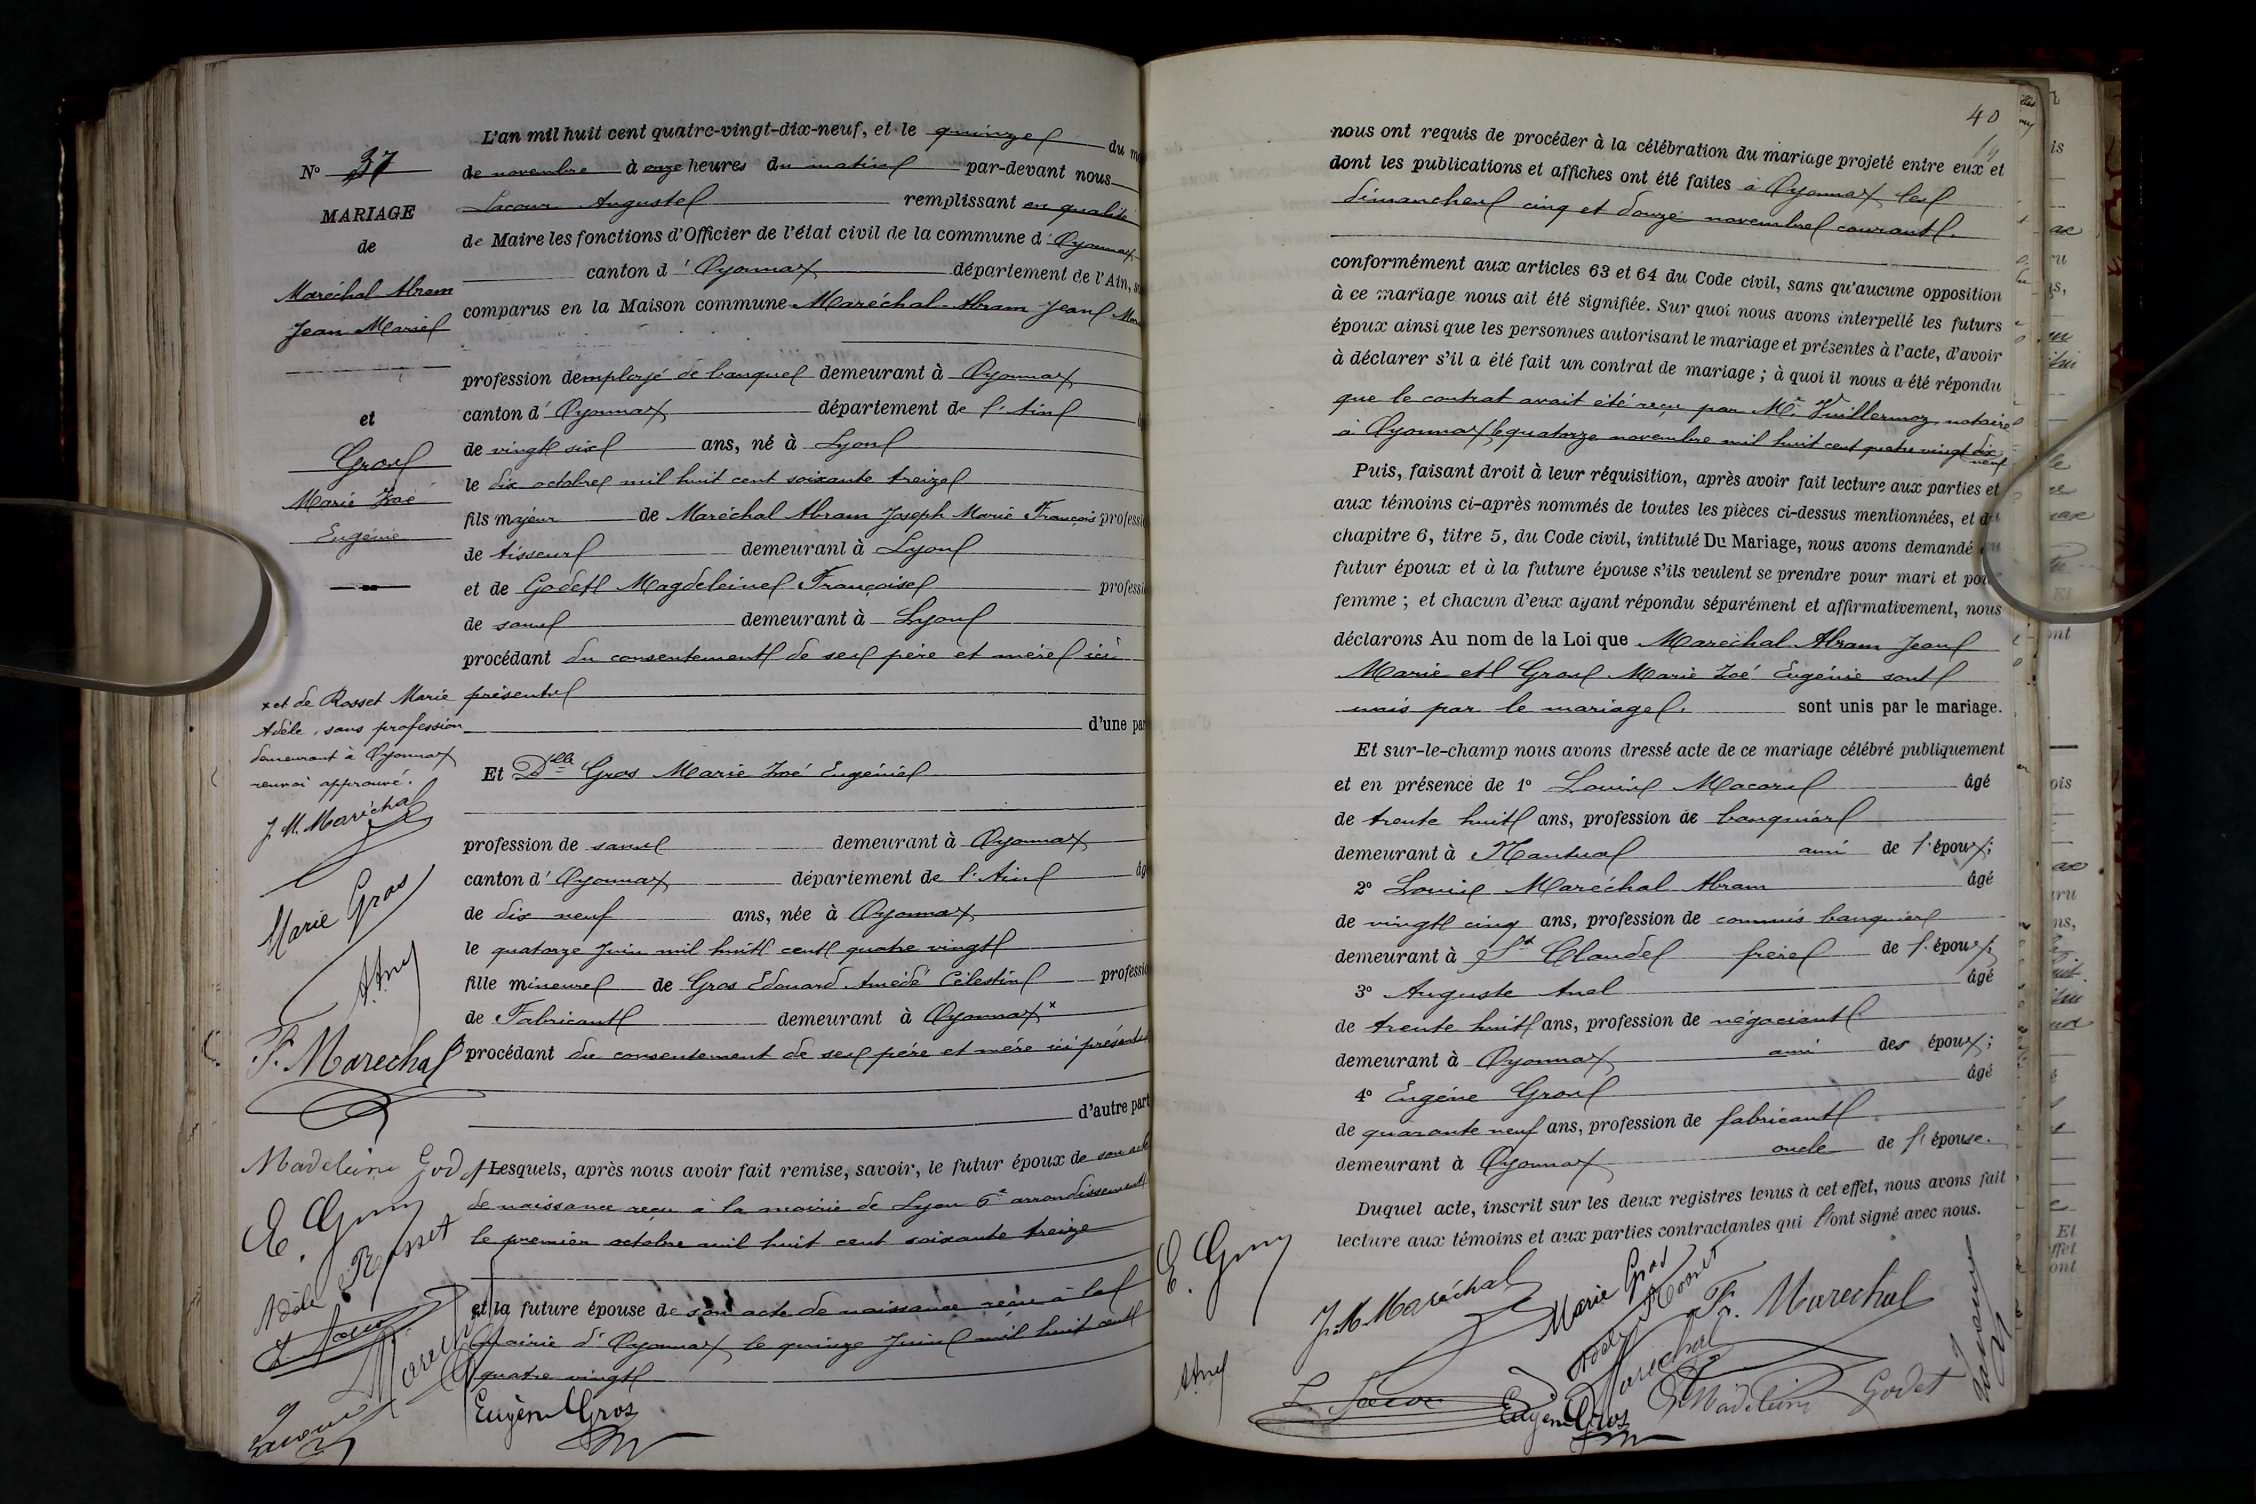 N° 37
MARIAGE
de
Maréchal Abram
Jean Marie
et
Gros
Marie Zoé
Eugénie
L'an mil huit cent quatre-vingt-dix-neuf, et le quinze du
de novembre à onze heures du matin par-devant nous
Lacour Auguste remplissant en qualité
de Maire les fonctions d'Officier de l'état civil de la commune d'Oyonnax
canton d'Oyonnax département de l'Ain,
comparus en la Maison commune Maréchal-Abram Jean
profession d'employé de banque demeurant à Oyonnax
canton d'Oyonnax département de l'Ain
de vingt six ans, né à Lyon
le dix octobre mil huit cent soixante treize
fils majeur de Maréchal Abram Joseph Marie François
de tisseur demeurant à Lyon
et de Godet Magdeleine Françoise
de sans demeurant à Lyon
procédant du consentement de ses père et mère ici
présents
d'une
Et Dlle Gros Marie Zoé Eugénie
profession de sans demeurant à Oyonnax
canton d'Oyonnax département de l'Ain
de dix neuf ans, née à Oyonnax
le quatorze Juin mil huit cent quatre vingt
fille mineure de Gros Edouard Amédé Célestin
de Fabricant demeurant à Oyonnax x
procédant du consentement de ses père et mère ici présents
d'autre part
Lesquels, après nous avoir fait remise, savoir, le futur époux de son acte
de naissance reçu à la mairie de Lyon 6e arrondissement
le premier octobre mil huit cent soixante treize
et la future épouse de son acte de naissance reçu à la
Mairie d'Oyonnax le quinze Juin mil huit cent
quatre vingt
x et de Rosset Marie
Adèle, sans profession
demeurant à Oyonnax
renvoi approuvé.
J. M. Maréchal
Marie Gros
F. Marechal
Madeleine Godet
Adèle Rosset
Eugène Gros
40
nous ont requis de procéder à la célébration du mariage projeté entre eux et
dont les publications et affiches ont été faites à Oyonnax les
dimanches cinq et douze novembre courant.
conformément aux articles 63 et 64 du Code civil, sans qu'aucune opposition
à ce mariage nous ait été signifiée. Sur quoi nous avons interpellé les futurs
époux ainsi que les personnes autorisant le mariage et présentes à l'acte, d'avoir
à déclarer s'il a été fait un contrat de mariage ; à quoi il nous a été répondu
que le contrat avait été reçu par Me Vuillermoz, notaire
à Oyonnax, le quatorze novembre mil huit cent quatre vingt dix
neuf
Puis, faisant droit à leur réquisition, après avoir fait lecture aux parties et
aux témoins ci-après nommés de toutes les pièces ci-dessus mentionnées, et du
chapitre 6, titre 5, du Code civil, intitulé Du Mariage, nous avons demandé au
futur époux et à la future épouse s'ils veulent se prendre pour mari et pour
femme ; et chacun d'eux ayant répondu séparément et affirmativement, nous
déclarons Au nom de la Loi que Maréchal-Abram Jean
Marie et Gros Marie Zoé Eugénie sont
unis par le mariage. sont unis par le mariage.
Et sur-le-champ nous avons dressé acte de ce mariage célébré publiquement
et en présence de 1° Louis Macorel âgé
de trente huit ans, profession de banquier
demeurant à Nantua ami de l'époux ;
2° Louis Maréchal Abram âgé
de vingt cinq ans, profession de commis banquier
demeurant à St Claude frère de l'époux ;
3° Auguste Anel âgé
de trente huit ans, profession de négociant
demeurant à Oyonnax ami des époux ;
4° Eugène Gros âgé
de quarante neuf ans, profession de fabricant
demeurant à Oyonnax oncle de l'épouse.
Duquel acte, inscrit sur les deux registres tenus à cet effet, nous avons fait
lecture aux témoins et aux parties contractantes qui l'ont signé avec nous.
J. M. Maréchal
Marie Gros
Adèle Rosset
F. Marechal
Eugène Gros
Madeleine Godet